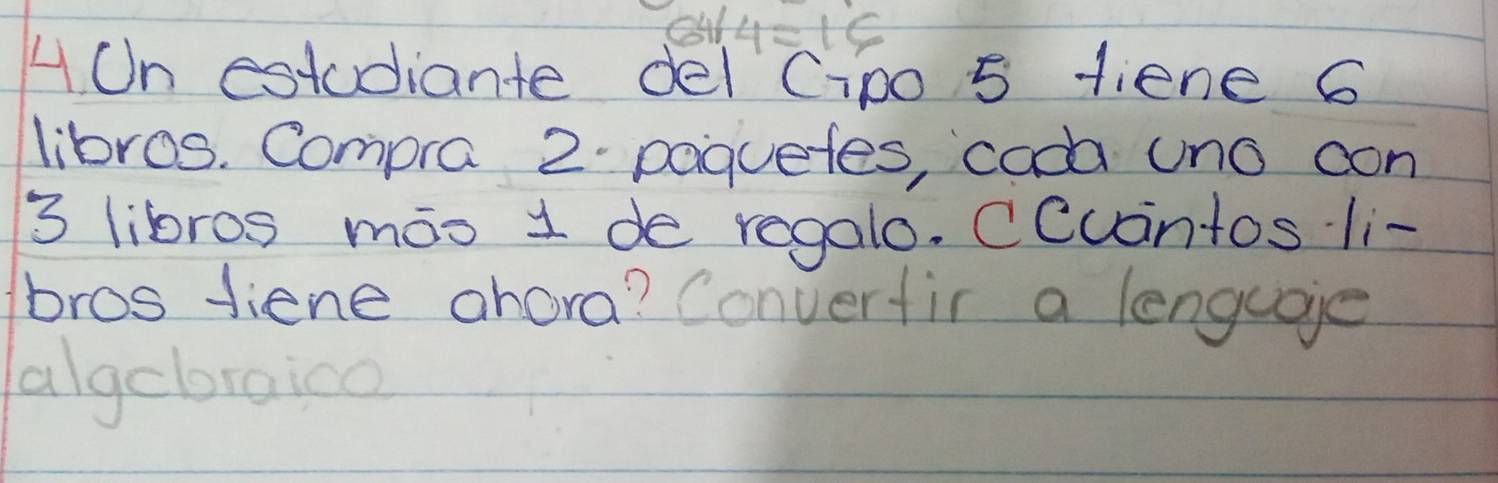 64/4=16
4. Un estudiante del Gpo 5 tiene 6
libros. Compra 2 paquetes, cada uno con
3 libros más 1 de regalo. ¿Cuántos li-
bros tiene ahora? Convertir a lenguaje
algebraico